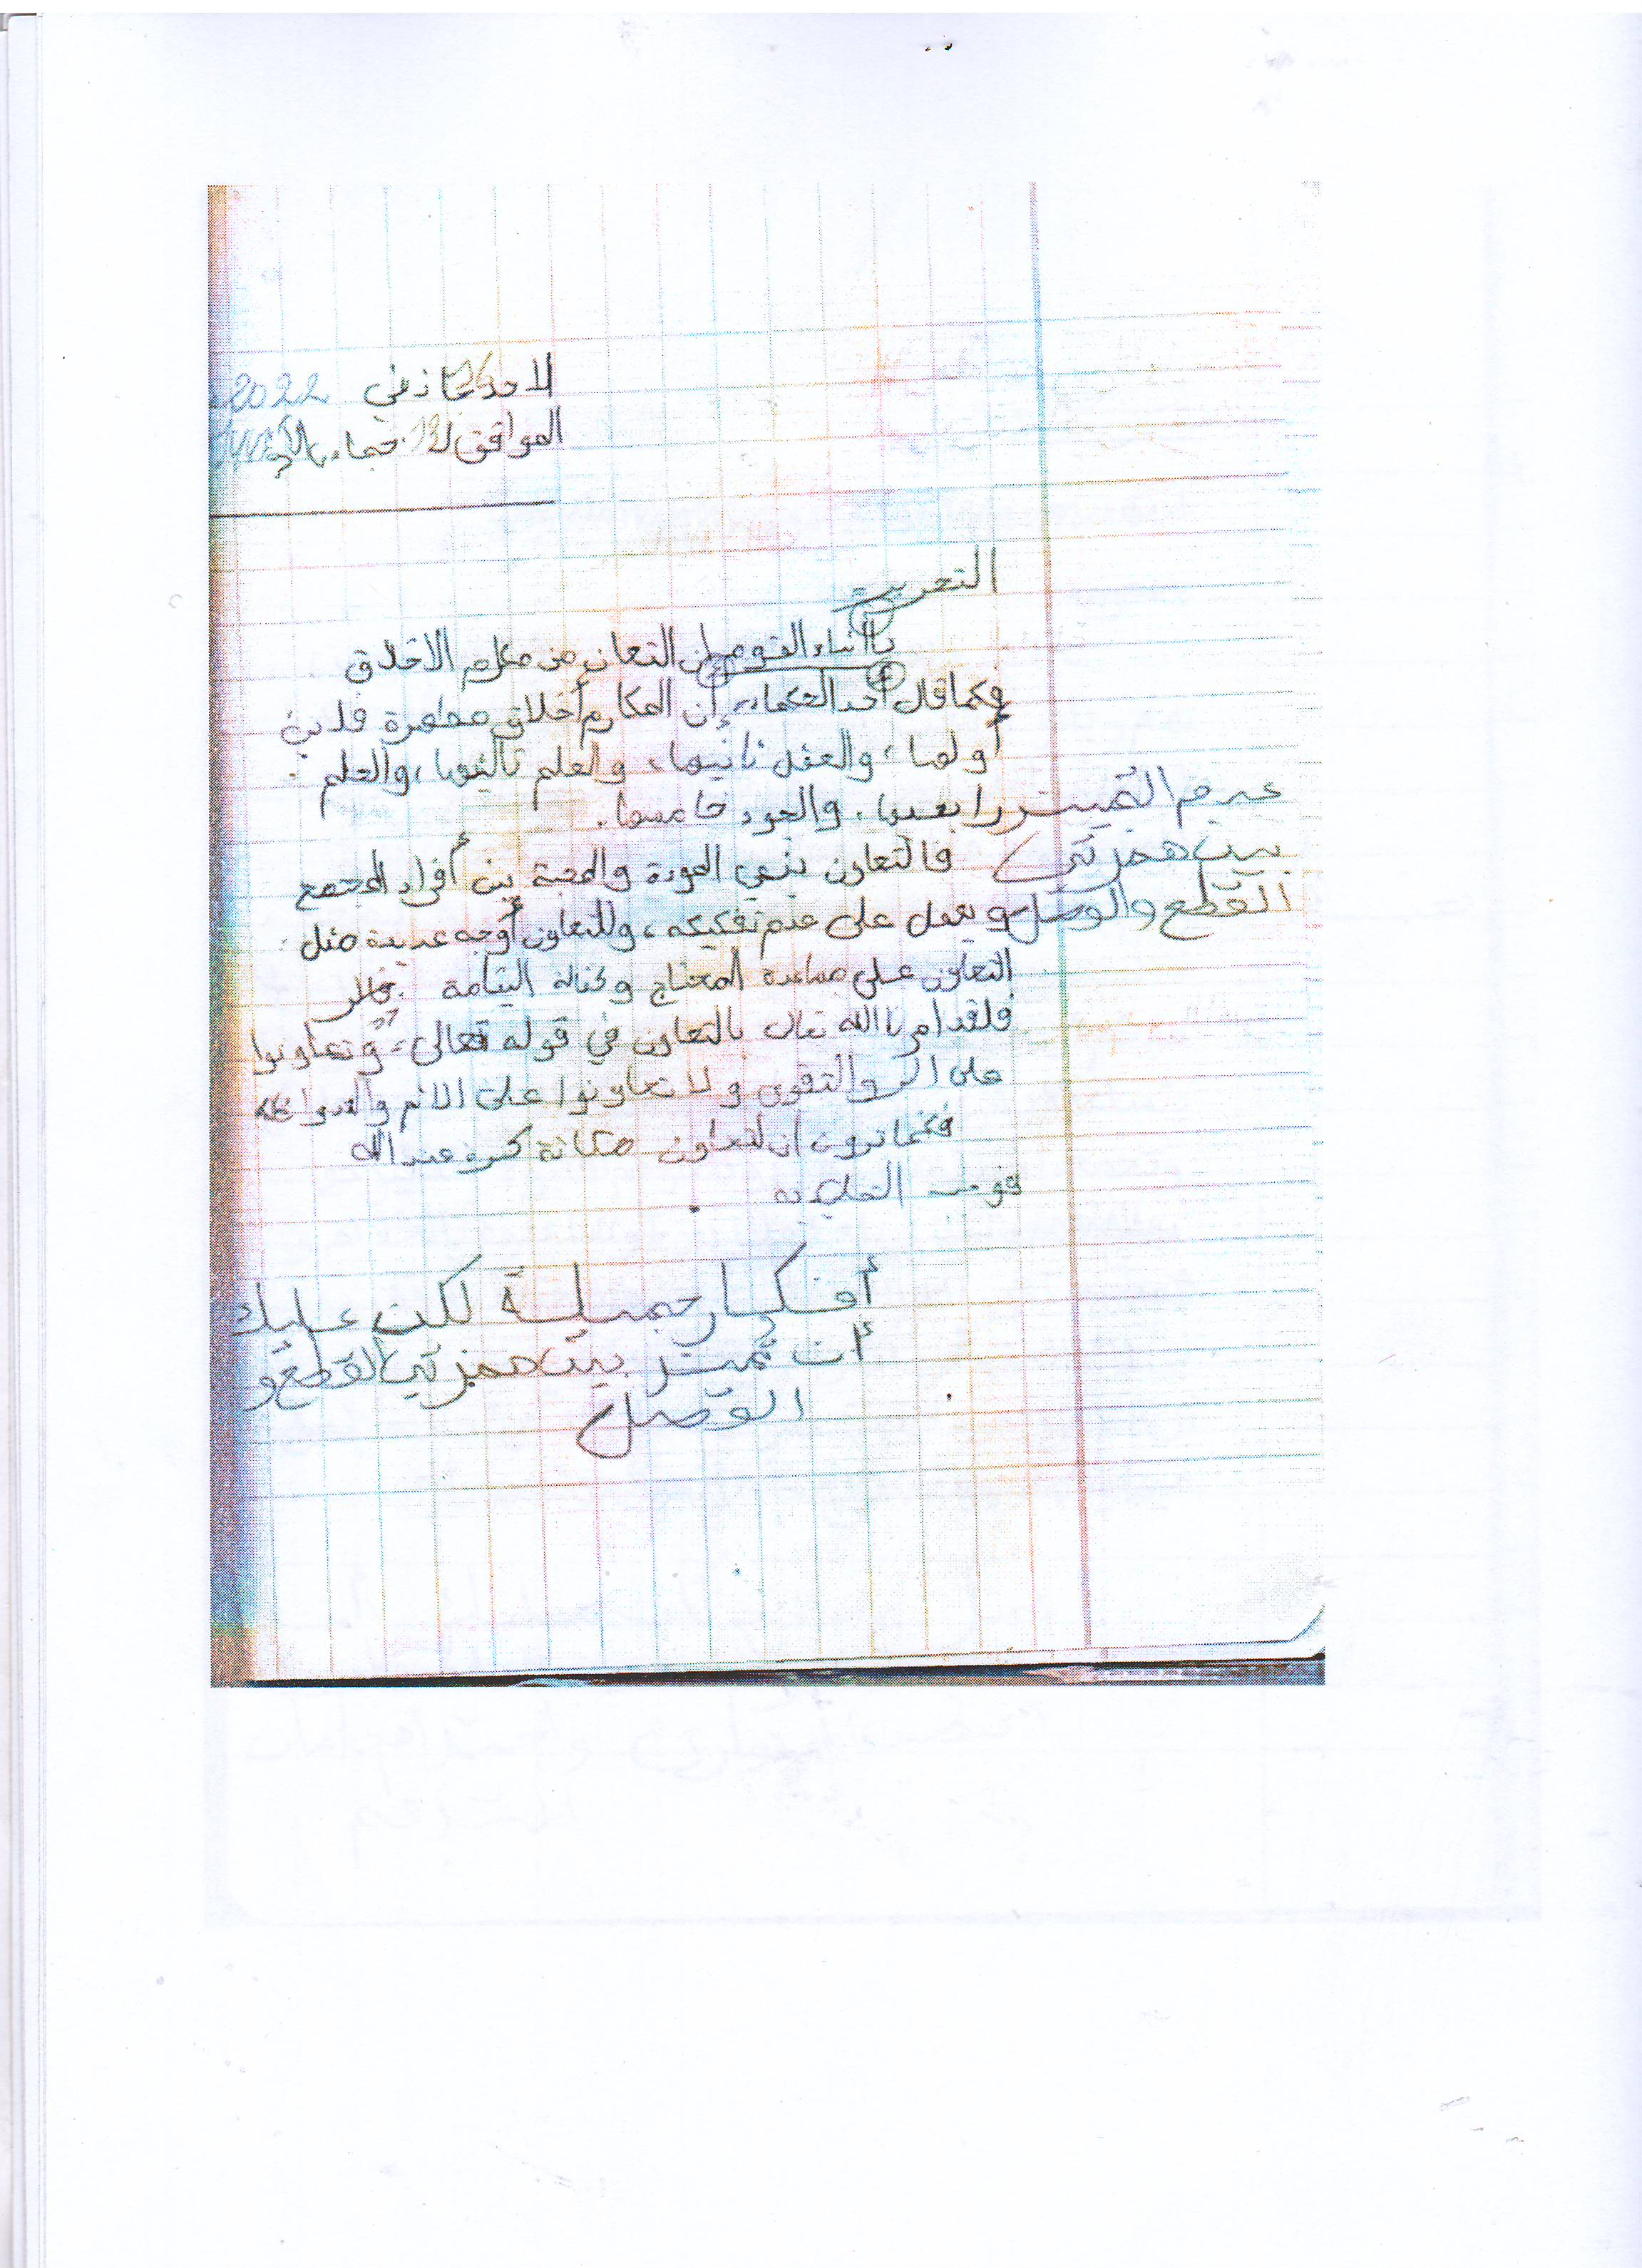 الاحد جانفي 2022
الموافق ل
التحرير
يا أبناء القوم إن التعان من مكارم الاخلاق
فكما قال أحد الحكماء "إن المكارم أخلاق مطهرة فلدين
أولها، والعقل ثانيها، والعلم ثالثها، والحلم
رابعها، والجود خامسها.
عدم التمييز
بين همزتي
القطع والوصل
فالتعاون ينمي المودة والمحبة بين أفراد المجتمع
و يعمل على عدم تفكيكه، وللتعاون أوجه عديدة مثل
التعاون على مساعدة المحتاج وكفالة اليتامة
فلقد امرنا الله تعالى بالتعاون في قوله تعالى، وتعاونوا
على البر والتقوى ولا تعاونوا على الاثم والعدوان
فكما ترون ان لتعاون مكانة كبيرة عند الله
فوجب التحلي به
أفكار جميلة لكن عليك
أن تميز بين همزتي القطع و
الوصل